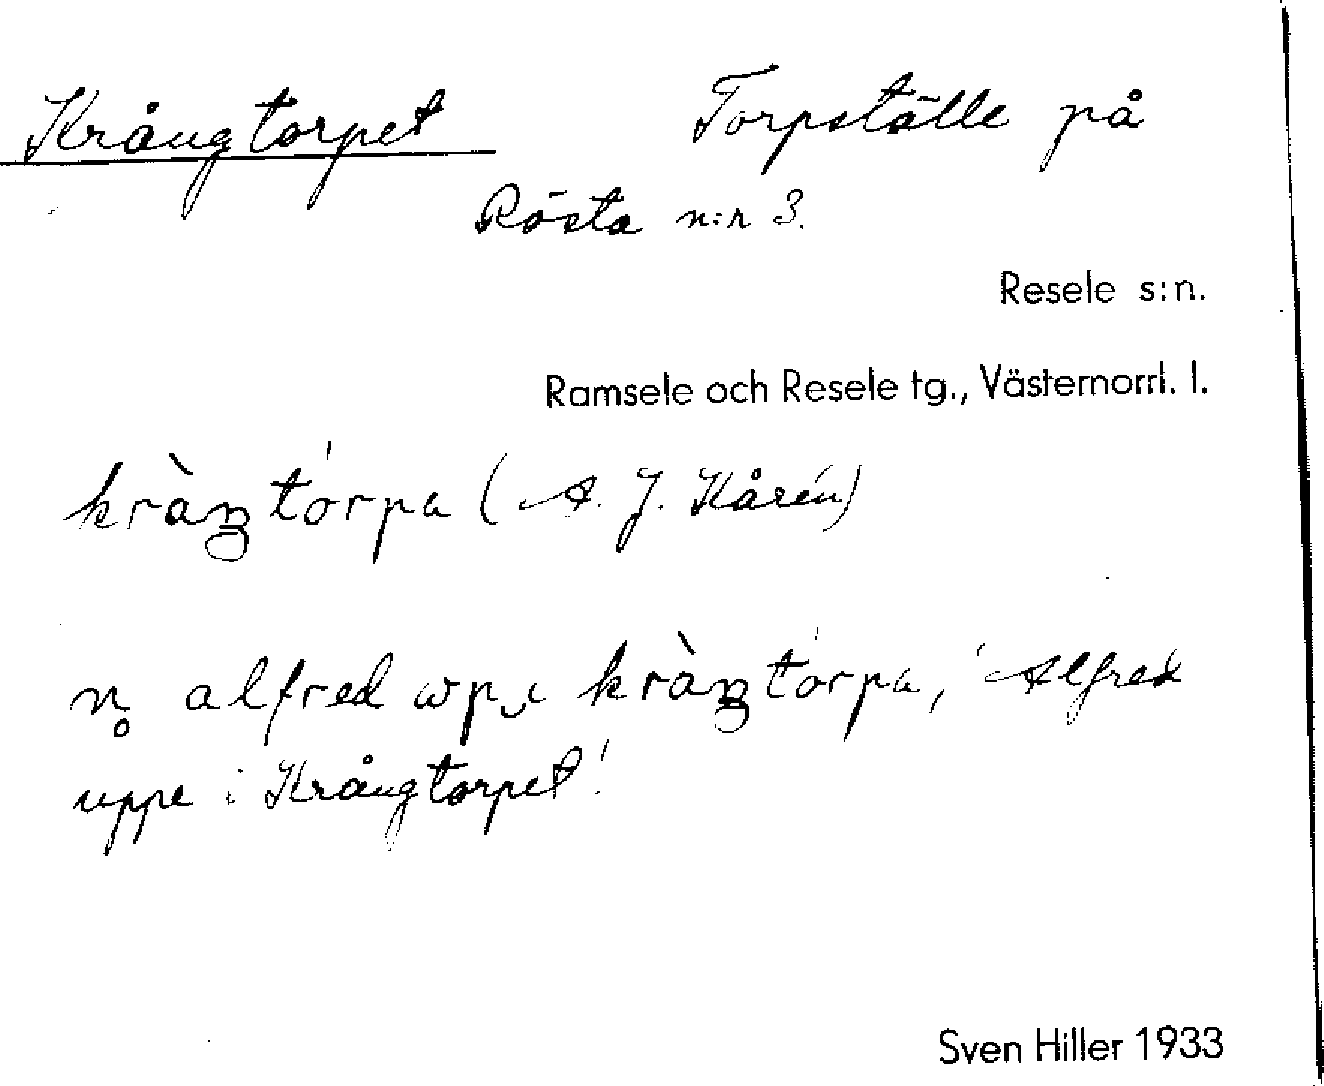 Krångtorpet Torpställe på
Rösta n:r 3.
Resele s:n.
Ramsele och Resele tg., Västernorrl. l.
kràŋtórpa (A. J. Kårén)
n̥ alfred kràŋtórpa, 'Alfred
uppe i Krångtorpet'
Sven Hiller 1933